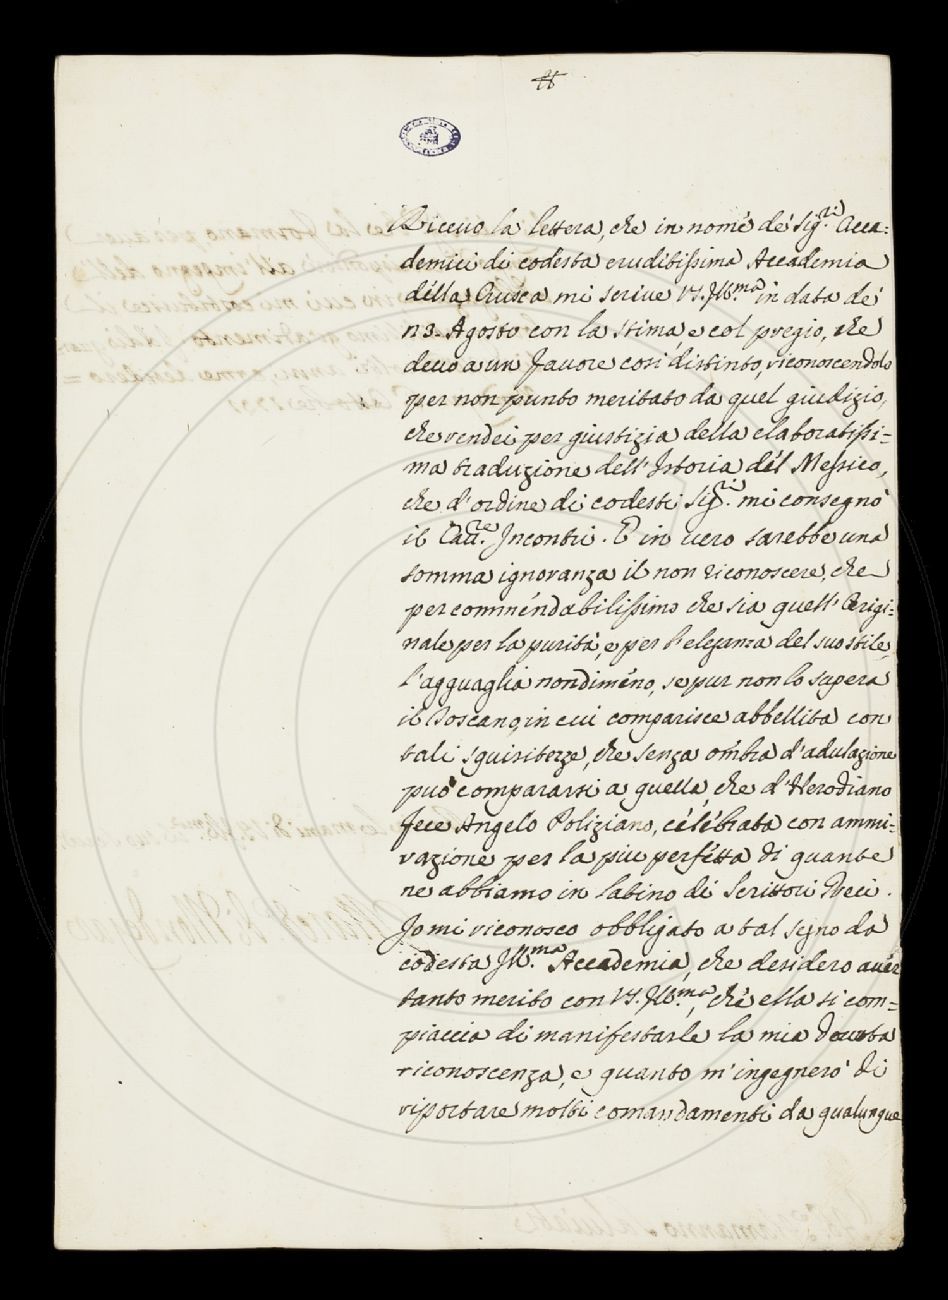 Riceuo la lettera, che in nome de Sig.ri Acca=
demici di codesta eruditissima Accademia
della Crusca mi scriue VS. Ill.ma in data de'
n3. Agosto con la stima, e col pregio, che
deuo a un fauore così distinto, riconoscendolo
per non punto meritato da quel giudizio,
che rendei per giustizia della elaboratissi=
ma traduzione dell'Istoria del Messico,
che d'ordine di codesti Sig.ri mi consegnò
il Cau.re Incontri. E in uero sarebbe una
somma ignoranza il non riconoscere, che
per commendabilissimo che sia quell'Origi=
nale per la purità, e per l'eleganza del suo stile,
l'agguaglia nondimeno, se pur non lo supera
il Toscano, in cui comparisce abbellita con
tali squisitezze, che senza ombra d'adulazione
può compararsi a quella, che d'Herodiano
fece Angelo Poliziano, celebrata con ammi=
razione per la piu perfetta di quante
ne abbiamo in latino di Scrittori Greci.
Io mi riconosco obbligato a tal segno da
codesta Ill.ma Accademia, che desidero auer
tanto merito con VS. Ill.ma, che ella si com=
piaccia di manifestarle la mia deuota
riconoscenza, e quanto m'ingegnerò di
riportare molti comandamenti da qualunque